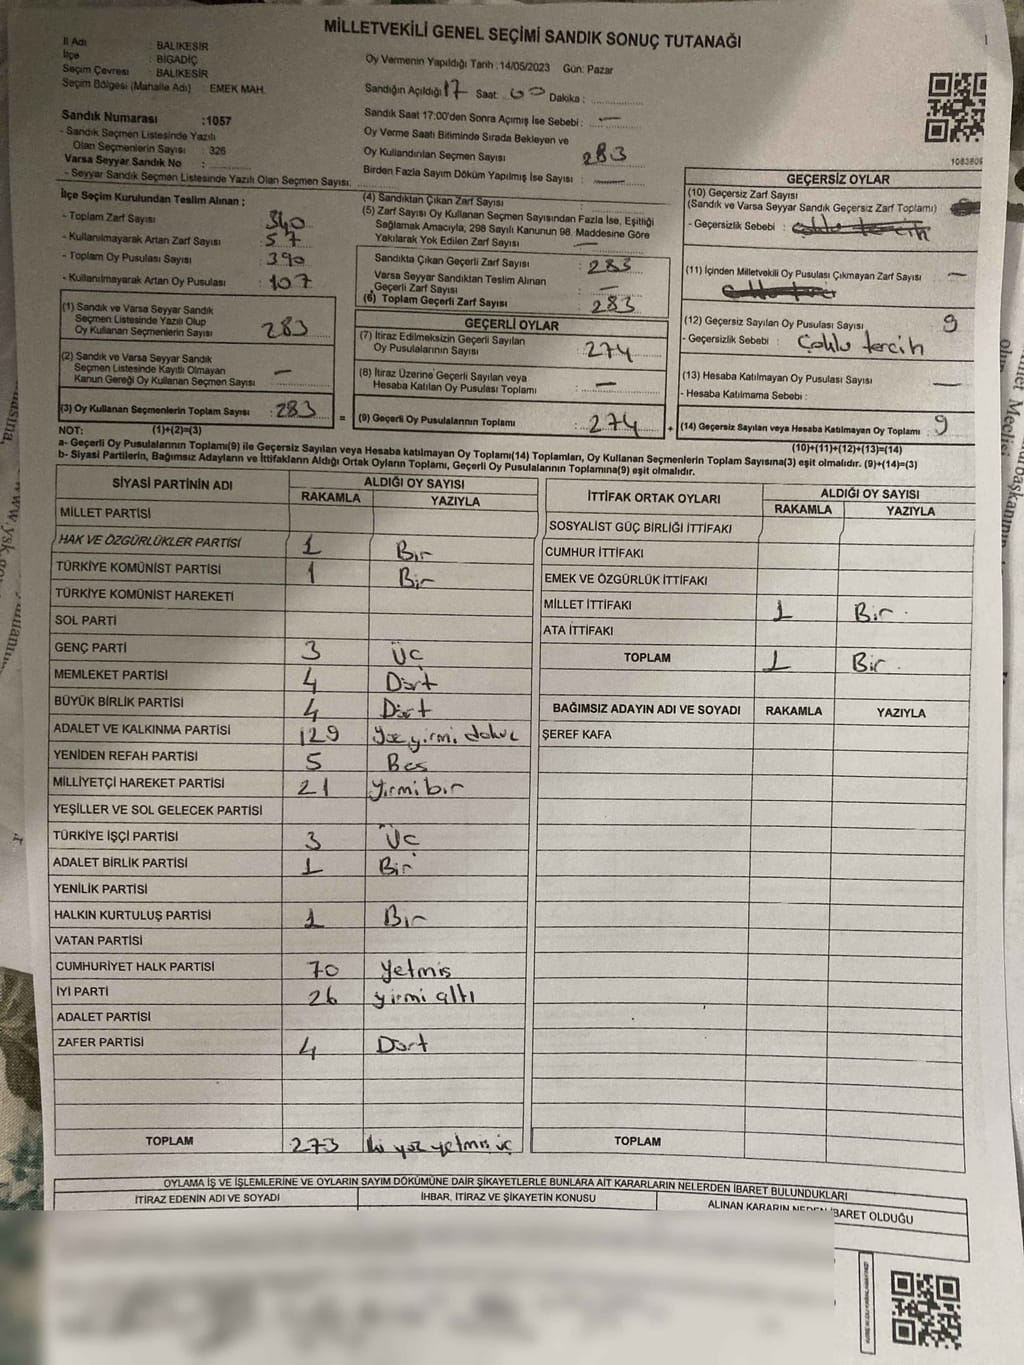 MİLLETVEKİLİ GENEL SEÇİMİ SANDIK SONUÇ TUTANAĞI
İl Adı : BALIKESİR
İlçe : BİGADİÇ
Seçim Çevresi : BALIKESİR
Seçim Bölgesi (Mahalle Adı) : EMEK MAH.
Sandık Numarası :1057
- Sandık Seçmen Listesinde Yazılı
Olan Seçmenlerin Sayısı : 326
Varsa Seyyar Sandık No :
- Seyyar Sandık Seçmen Listesinde Yazılı Olan Seçmen Sayısı:
Oy Vermenin Yapıldığı Tarih :14/05/2023 Gün: Pazar
Sandığın Açıldığı 17 Saat 00 Dakika :
Sandık Saat 17:00'den Sonra Açımış İse Sebebi : —
Oy Verme Saati Bitiminde Sırada Bekleyen ve
Oy Kullandırılan Seçmen Sayısı 283
Birden Fazla Sayım Döküm Yapılmış İse Sayısı : —
İlçe Seçim Kurulundan Teslim Alınan ;
- Toplam Zarf Sayısı 340
- Kullanılmayarak Artan Zarf Sayısı : 57
- Toplam Oy Pusulası Sayısı : 390
- Kullanılmayarak Artan Oy Pusulası : 107
(1) Sandık ve Varsa Seyyar Sandık
Seçmen Listesinde Yazılı Olup
Oy Kullanan Seçmenlerin Sayısı 283
(2) Sandık ve Varsa Seyyar Sandık
Seçmen Listesinde Kayıtlı Olmayan
Kanun Gereği Oy Kullanan Seçmen Sayısı —
(3) Oy Kullanan Seçmenlerin Toplam Sayısı : 283 =
(4) Sandıktan Çıkan Zarf Sayısı :
(5) Zarf Sayısı Oy Kullanan Seçmen Sayısından Fazla İse, Eşitliği
Sağlamak Amacıyla, 298 Sayılı Kanunun 98. Maddesine Göre
Yakılarak Yok Edilen Zarf Sayısı —
Sandıkta Çıkan Geçerli Zarf Sayısı : 283
Varsa Seyyar Sandıktan Teslim Alınan
Geçerli Zarf Sayısı : —
(6) Toplam Geçerli Zarf Sayısı 283
GEÇERLİ OYLAR
(7) İtiraz Edilmeksizin Geçerli Sayılan
Oy Pusulalarının Sayısı : 274
(8) İtiraz Üzerine Geçerli Sayılan veya
Hesaba Katılan Oy Pusulası Toplamı : —
(9) Geçerli Oy Pusulalarının Toplamı : 274 +
1083809
GEÇERSİZ OYLAR
(10) Geçersiz Zarf Sayısı
(Sandık ve Varsa Seyyar Sandık Geçersiz Zarf Toplamı)
- Geçersizlik Sebebi : Çoklu tercih
(11) İçinden Milletvekili Oy Pusulası Çıkmayan Zarf Sayısı —
(12) Geçersiz Sayılan Oy Pusulası Sayısı 9
- Geçersizlik Sebebi : Çoklu tercih
(13) Hesaba Katılmayan Oy Pusulası Sayısı —
- Hesaba Katılmama Sebebi :
(14) Geçersiz Sayılan veya Hesaba Katılmayan Oy Toplamı 9
NOT: (1)+(2)=(3) (10)+(11)+(12)+(13)=(14)
a- Geçerli Oy Pusulalarının Toplamı(9) ile Geçersiz Sayılan veya Hesaba katılmayan Oy Toplamı(14) Toplamları, Oy Kullanan Seçmenlerin Toplam Sayısına(3) eşit olmalıdır. (9)+(14)=(3)
b- Siyasi Partilerin, Bağımsız Adayların ve İttifakların Aldığı Ortak Oyların Toplamı, Geçerli Oy Pusulalarının Toplamına(9) eşit olmalıdır.
SİYASİ PARTİNİN ADI ALDIĞI OY SAYISI
RAKAMLA YAZIYLA
MİLLET PARTİSİ
HAK VE ÖZGÜRLÜKLER PARTİSİ 1 Bir
TÜRKİYE KOMÜNİST PARTİSİ 1 Bir
TÜRKİYE KOMÜNİST HAREKETİ
SOL PARTİ
GENÇ PARTİ 3 Üç
MEMLEKET PARTİSİ 4 Dört
BÜYÜK BİRLİK PARTİSİ 4 Dört
ADALET VE KALKINMA PARTİSİ 129 Yüz yirmi dokuz
YENİDEN REFAH PARTİSİ 5 Bes
MİLLİYETÇİ HAREKET PARTİSİ 21 Yirmi bir
YEŞİLLER VE SOL GELECEK PARTİSİ
TÜRKİYE İŞÇİ PARTİSİ 3 Üç
ADALET BİRLİK PARTİSİ 1 Bir
YENİLİK PARTİSİ
HALKIN KURTULUŞ PARTİSİ 1 Bir
VATAN PARTİSİ
CUMHURİYET HALK PARTİSİ 70 Yetmis
İYİ PARTİ 26 yirmi altı
ADALET PARTİSİ
ZAFER PARTİSİ 4 Dört
TOPLAM 273 İki yüz yetmis üç
İTTİFAK ORTAK OYLARI ALDIĞI OY SAYISI
RAKAMLA YAZIYLA
SOSYALİST GÜÇ BİRLİĞİ İTTİFAKI
CUMHUR İTTİFAKI
EMEK VE ÖZGÜRLÜK İTTİFAKI
MİLLET İTTİFAKI 1 Bir
ATA İTTİFAKI
TOPLAM 1 Bir
BAĞIMSIZ ADAYIN ADI VE SOYADI RAKAMLA YAZIYLA
ŞEREF KAFA
TOPLAM
OYLAMA İŞ VE İŞLEMLERİNE VE OYLARIN SAYIM DÖKÜMÜNE DAİR ŞİKAYETLERLE BUNLARA AİT KARARLARIN NELERDEN İBARET BULUNDUKLARI
İTİRAZ EDENİN ADI VE SOYADI İHBAR, İTİRAZ VE ŞİKAYETİN KONUSU ALINAN KARARIN NEDEN İBARET OLDUĞU